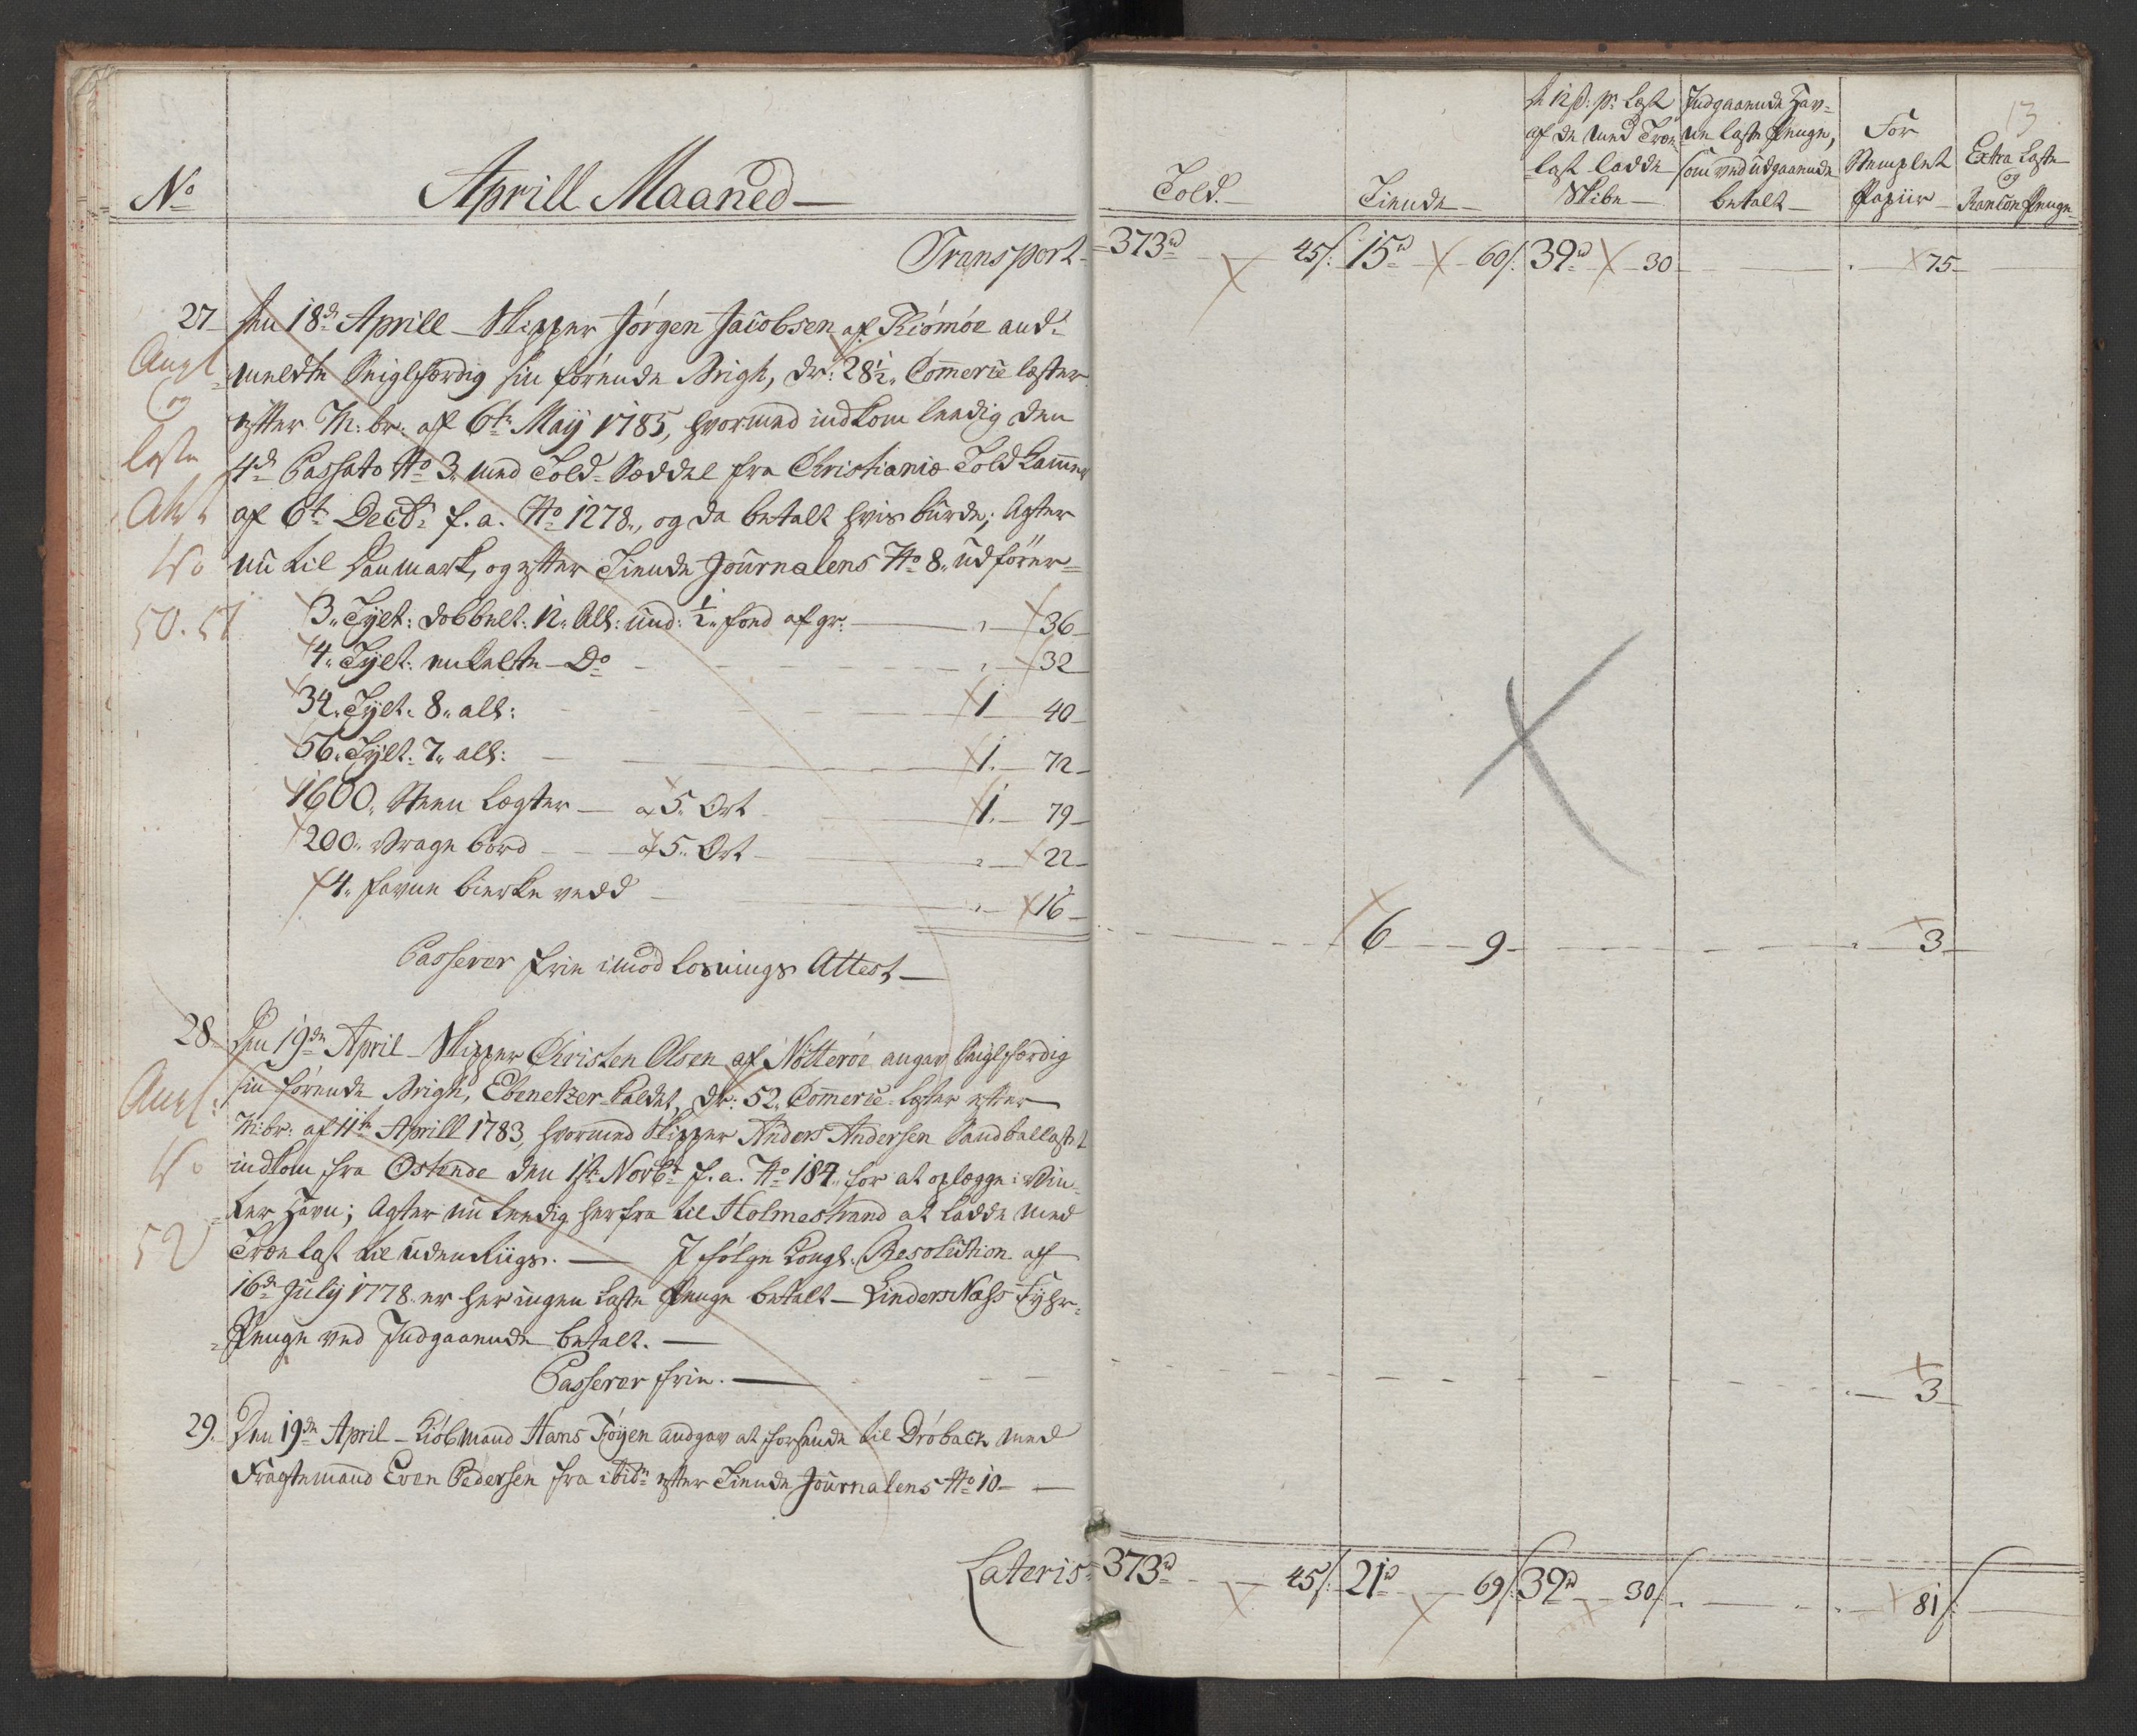 No
Aprill Maaned
Told.
Tiende
à 12 s: pr Læst
af de med Træ=
last ladde
Skibe
Indgaaende Hav=
ne laste Penge,
som ved udgaaende
betalt
For
Stemplet
Papiir
13
Extra Laste
og
Rancon Penge
Transport 373rd 45s: 15rd 60s: 39rd 30 75
27 den 18de Aprill Skipper Jörgen Jacobsen af Kiömöe and=
meldte Seiglfærdig sin förende Brigk, dr: 28½ Comerie læster
efter M: br: af 6te Maij 1785, hvormed indkom leedig den
4de Passato No 3 med Told=Sæddel fra Christiania Told Kammer
af 6te Decbr f. a. No 1278, og da betalt hvis burde; Agter
nu til Danmark, og efter Tiende Journalens No 8 udförer
og
laste
No
50. 51
3 Tylt: dobbelt: 12 All: und: ½ fod af gr: 36
4 Tylt: enkelte Do 32
34 Tylt: 8 all: 1 40
56 Tylt: 7 all: 1 72
1600 Steen Lægter a 5 Ort 1 79
200 Vrage bord a 5 Ort 22
4 favne bierke vedd 16
6 9 3
Passerer frie imod losnings Attest
28 Den 19de April Skipper Christen Olsen af Nötteröe angav Seiglfærdig
sin förende Brigk, Ebenetzer kaldet, dr: 52 Comerie læster efter
M: br: af 11te Aprill 1783, hvormed Skipper Anders Andersen Sandballastet
indkom fra Ostende den 1ste Novbr f. a. No 184 for at oplægge i Vin=
ter Havn; Agter nu leedig herfra til Holmestrand at ladde med
Træelast til udenRiigs. I fölge Kongl: Resolution af
16de July 1778 er her ingen Laste Penge betalt Lindersnæss Fyhr=
Penge ved Indgaaende betalt.
No
52
Passerer frie. 3
29. Den 19de April Kiöbmand Hans Föyen andgav at forsende til Dröback med
Fragtemand Even Pedersen fra ibidm efter Tiende Journalens No 10
Lateris 373rd 45s: 21rd 69s: 39rd 30s: 81s: